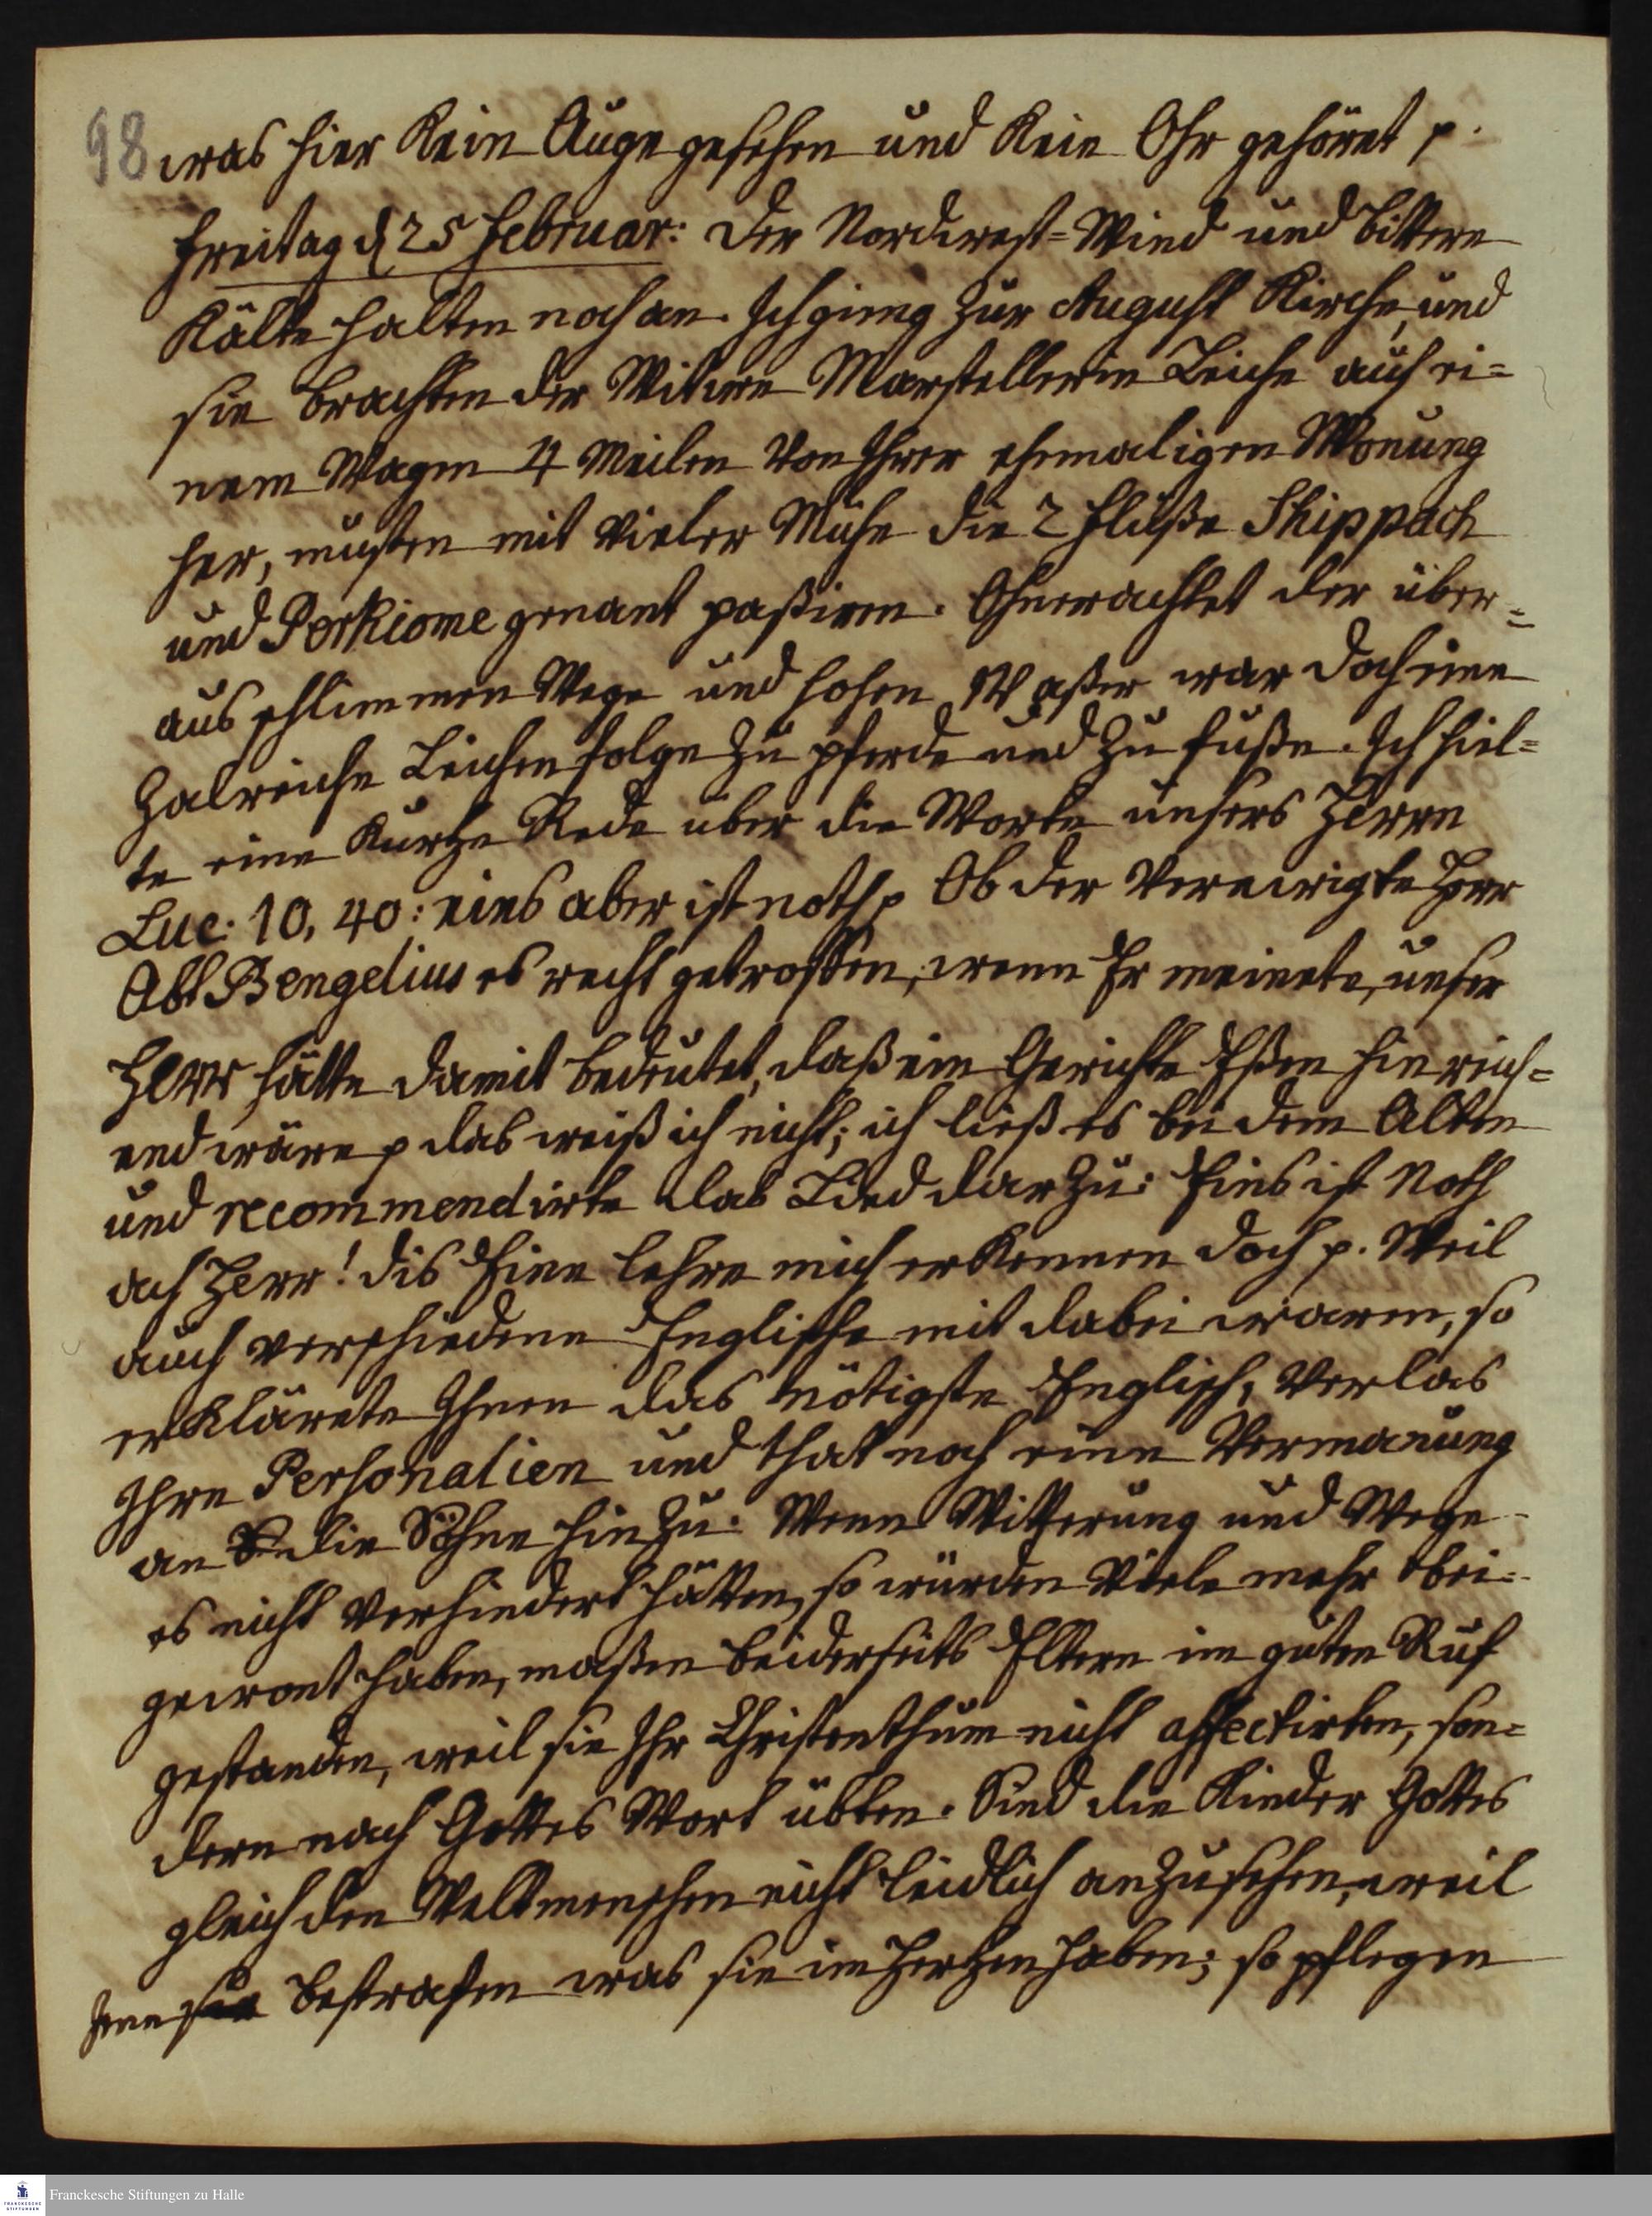 98 was hier kein Auge gesehen und kein Ohr gehöret p.
Freitag d 25 Februar: der Nordwest=Wind und bittere
Kälte halten noch an. Ich gieng zur August Kirche, und
sie brachten der Witwe Marstellerin Leiche auf ei=
nem Wagen 4 Meilen von Ihrer ehemaligen Wonung
her, musten mit vieler Mühe die 2 Flüße Skippach
und Perkiome genant paßiren. Ohnerachtet der über=
aus schlimmen Wege und hohen Waßer war doch eine
zalreiche Leichenfolge zu Pferde und zu Fuße. Ich hiel=
te eine kurtze Rede über die Worte unsers Herrn
Luc. 10, 40: eins aber ist noth p Ob der verewigte Herr
Abt Bengelius es recht getroffen, wenn Er meinete, unser
HErr hätte damit bedeutet, daß ein Gerichte Eßen hinreich=
end wäre p das weiß ich nicht; ich ließ es bei dem Alten
und recommendirte das Lied darzu: Eins ist Noth
ach Herr! dis Eine lehre mich erkennen doch p. Weil
auch verschiedene Englische mit dabei waren, so
erklärete Ihnen das nötigste Englisch, verlas
Ihre Personalien und that noch eine Vermanung
an die Söhne hinzu. Wenn Witterung und Wege
es nicht verhindert hätten, so würden viele mehr bei=
gewont haben, maßen beiderseits Eltern im guten Ruf
gestanden, weil sie Ihr Christenthum nicht affectirten, son=
dern nach Gottes Wort übten. Sind die Kinder Gottes
gleich den Weltmenschen nicht leidlich anzusehen, weil
jene sie bestrafen was sie im Hertzen haben; so pflegen
Franckesche Stiftungen zu Halle